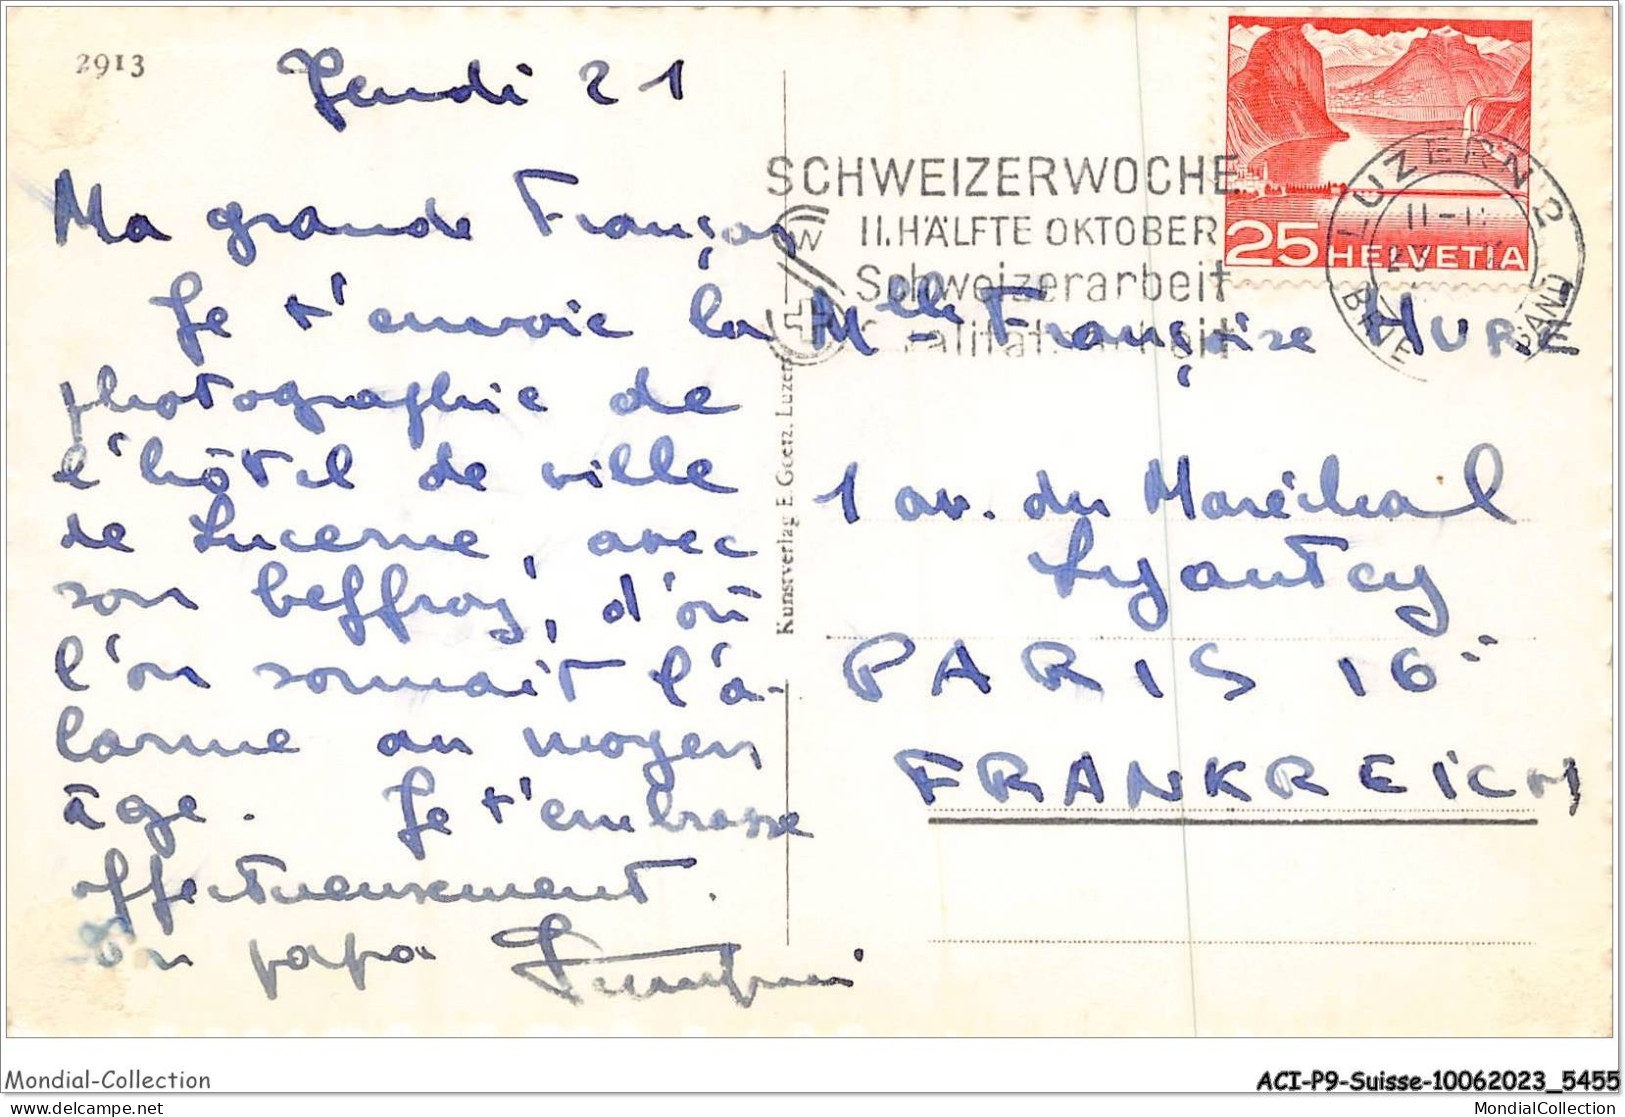 2913
Jeudi 21
Ma grande Françoise
Je t'envoie la
photographie de
l'hôtel de ville
de Lucerne, avec
son beffroy, d'où
l'on sonnait l'a-
larme au moyen
âge. Je t'embrasse
affectueusement.
Ton papa
Kunstverlag E. Goetz, Luzern
SCHWEIZERWOCHE
II. HÄLFTE OKTOBER
Schweizerarbeit
Qualitätsarbeit
25 HELVETIA
LUZERN 2
BRIEFVERSAND
Mlle Françoise HURE
1 av. du Maréchal
Lyautey
PARIS 16
FRANKREICH
Mondial-Collection
ACI-P9-Suisse-10062023_5455
www.delcampe.net
MondialCollection